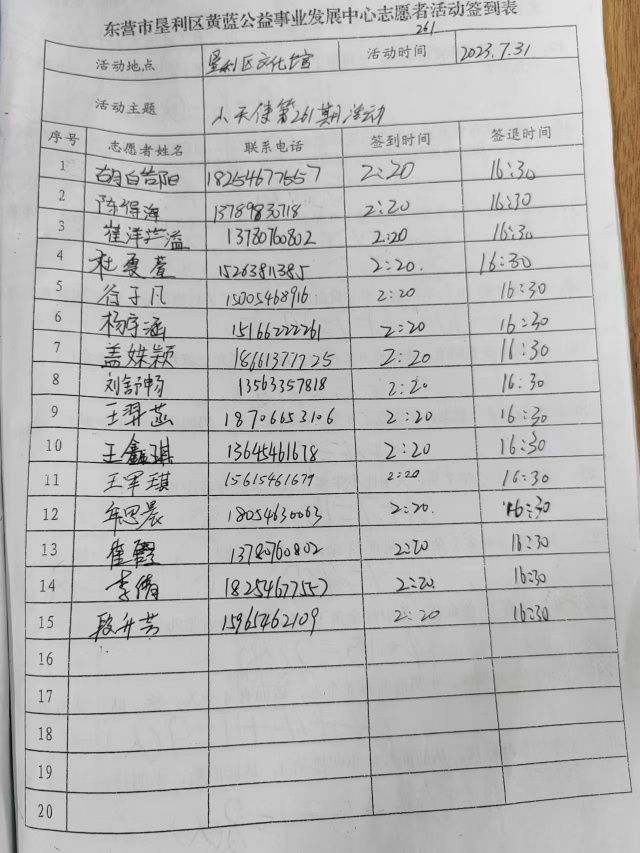 东营市垦利区黄蓝公益事业发展中心志愿者活动签到表
261
活动地点 垦利区文化馆 活动时间 2023.7.31
活动主题 小天使第261期活动
序号 志愿者姓名 联系电话 签到时间 签退时间
1 2:20 16:30
2 陈得海 13789983718 2:20 16:30
3 崔洋 13780760802 2:20 16:30
4 杜夏萱 15263811385 2:20. 16:30
5 谷子凡 15005468916 2:20 16:30
6 杨宇涵 15166222261 2:20 16:30
7 盖姝颖 18661377725 2:20 16:30
8 刘舒畅 13563357818 2:20 16:30
9 王羿菡 18706653106 2:20 16:30
10 王鑫琪 13645461678 2:20 16:30
11 王军琪 15615461677 2:20 16:30
12 牟思晨 18054630063 2:20. 16:30
13 崔霞 13780760802 2:20 16:30
14 李倩 18254677557 2:20. 16:30
15 段升芸 15965462109 2:20 16:30
16
17
18
19
20